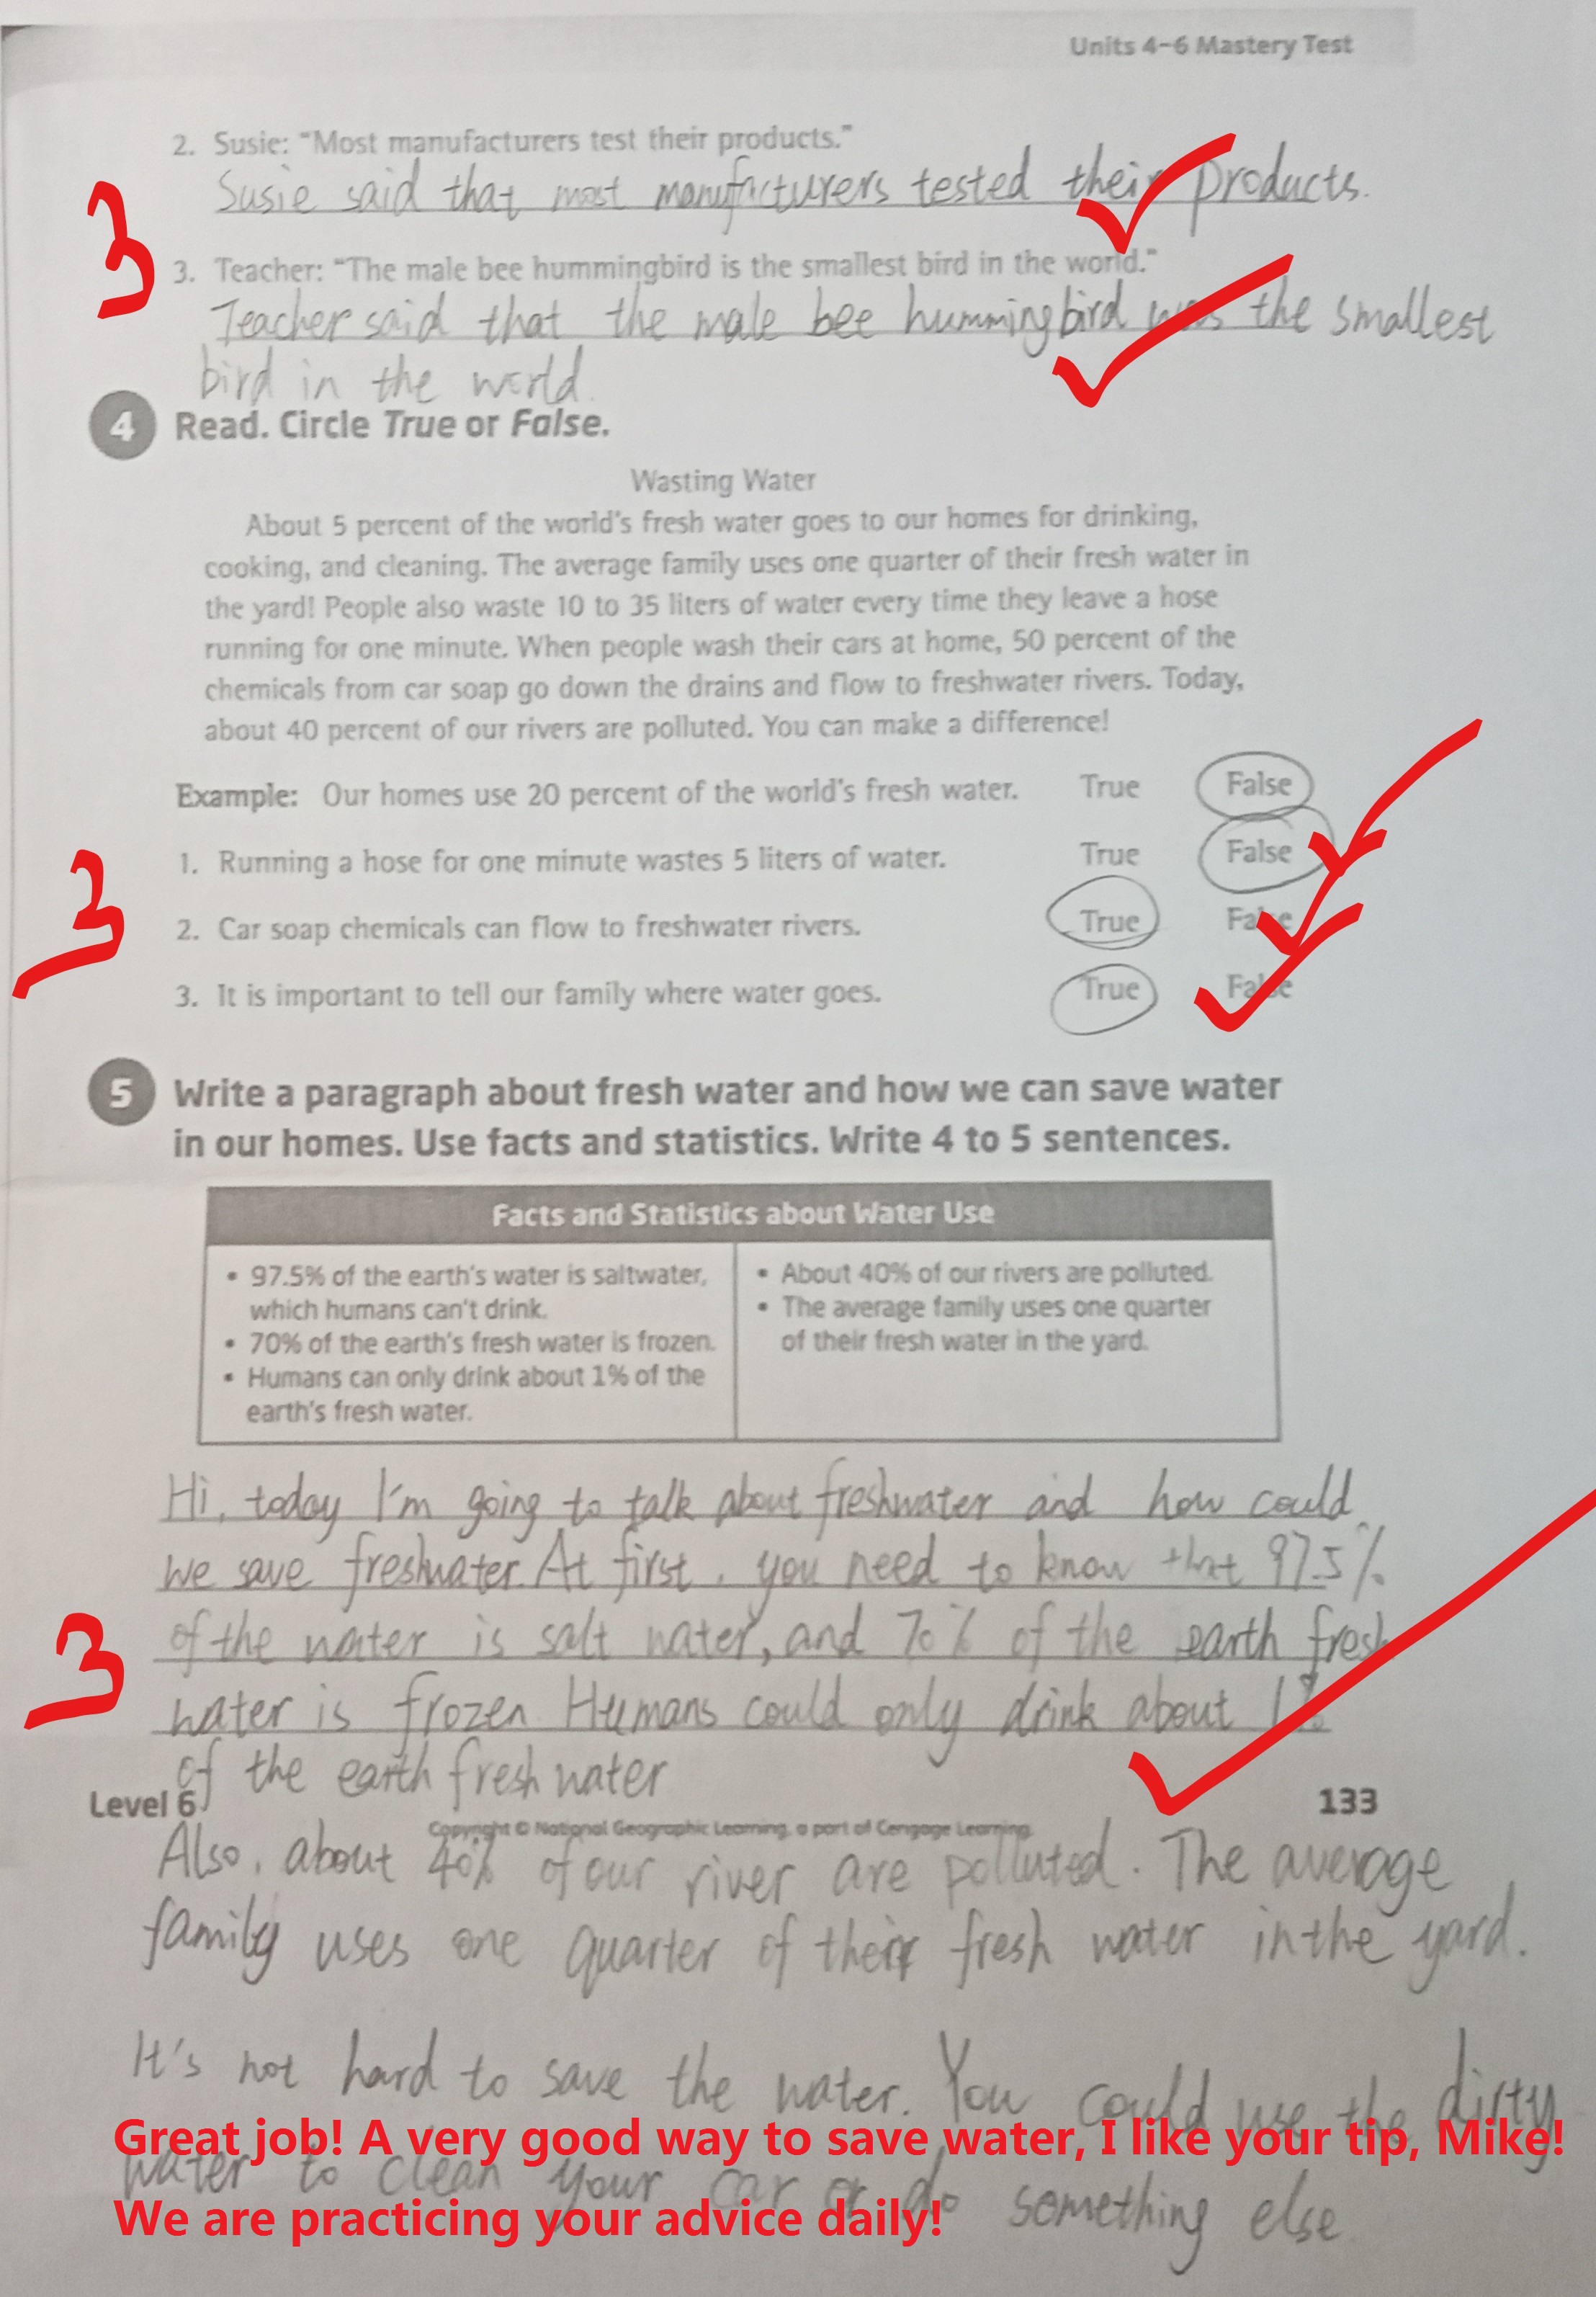 Units 4-6 Mastery Test
2. Susie: "Most manufacturers test their products."
Susie said that most manufacturers tested their products.
3
3. Teacher: "The male bee hummingbird is the smallest bird in the world."
Teacher said that the male bee hummingbird was the smallest
bird in the world.
4 Read. Circle True or False.
Wasting Water
About 5 percent of the world's fresh water goes to our homes for drinking,
cooking, and cleaning. The average family uses one quarter of their fresh water in
the yard! People also waste 10 to 35 liters of water every time they leave a hose
running for one minute. When people wash their cars at home, 50 percent of the
chemicals from car soap go down the drains and flow to freshwater rivers. Today,
about 40 percent of our rivers are polluted. You can make a difference!
Example: Our homes use 20 percent of the world's fresh water. True False
1. Running a hose for one minute wastes 5 liters of water. True False
3
2. Car soap chemicals can flow to freshwater rivers. True False
3. It is important to tell our family where water goes. True False
5 Write a paragraph about fresh water and how we can save water
in our homes. Use facts and statistics. Write 4 to 5 sentences.
Facts and Statistics about Water Use
• 97.5% of the earth's water is saltwater,
which humans can't drink.
• 70% of the earth's fresh water is frozen.
• Humans can only drink about 1% of the
earth's fresh water.
• About 40% of our rivers are polluted.
• The average family uses one quarter
of their fresh water in the yard.
Hi, today I'm going to talk about freshwater and how could
we save freshwater. At first, you need to know that 97.5%
of the water is salt water, and 70% of the earth fresh
3
water is frozen. Humans could only drink about 1%
of the earth fresh water
Level 6 133
Copyright © National Geographic Learning, a part of Cengage Learning
Also, about 40% of our river are polluted. The average
family uses one quarter of their fresh water in the yard.
It's not hard to save the water. You could use the dirty
water to clean your car or do something else.
Great job! A very good way to save water, I like your tip, Mike!
We are practicing your advice daily!